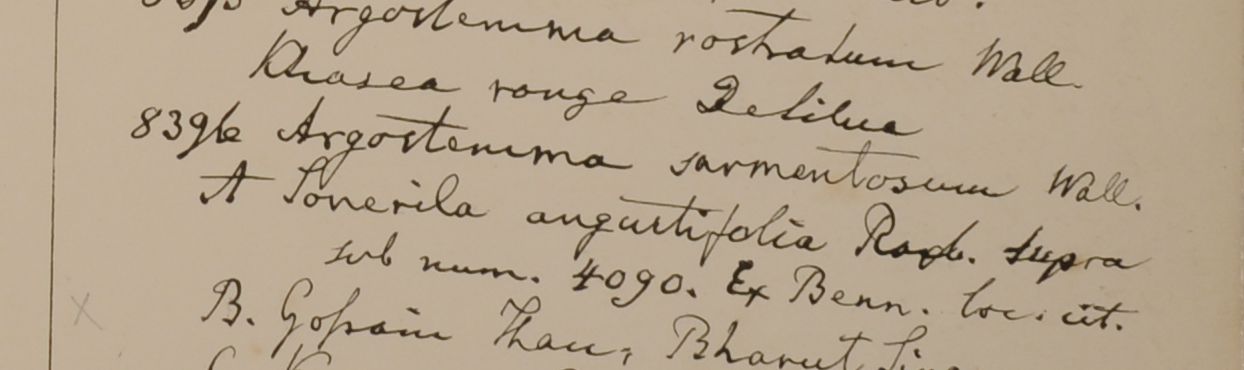 Argostemma rostratum Wall.
Khasea range De Silva
8396 Argostemma sarmentosum Wall.
A Sonerila angustifolia Roxb. supra
sub num. 4090. Ex Benn. loc. cit.
B. Gossain Than, Bharut